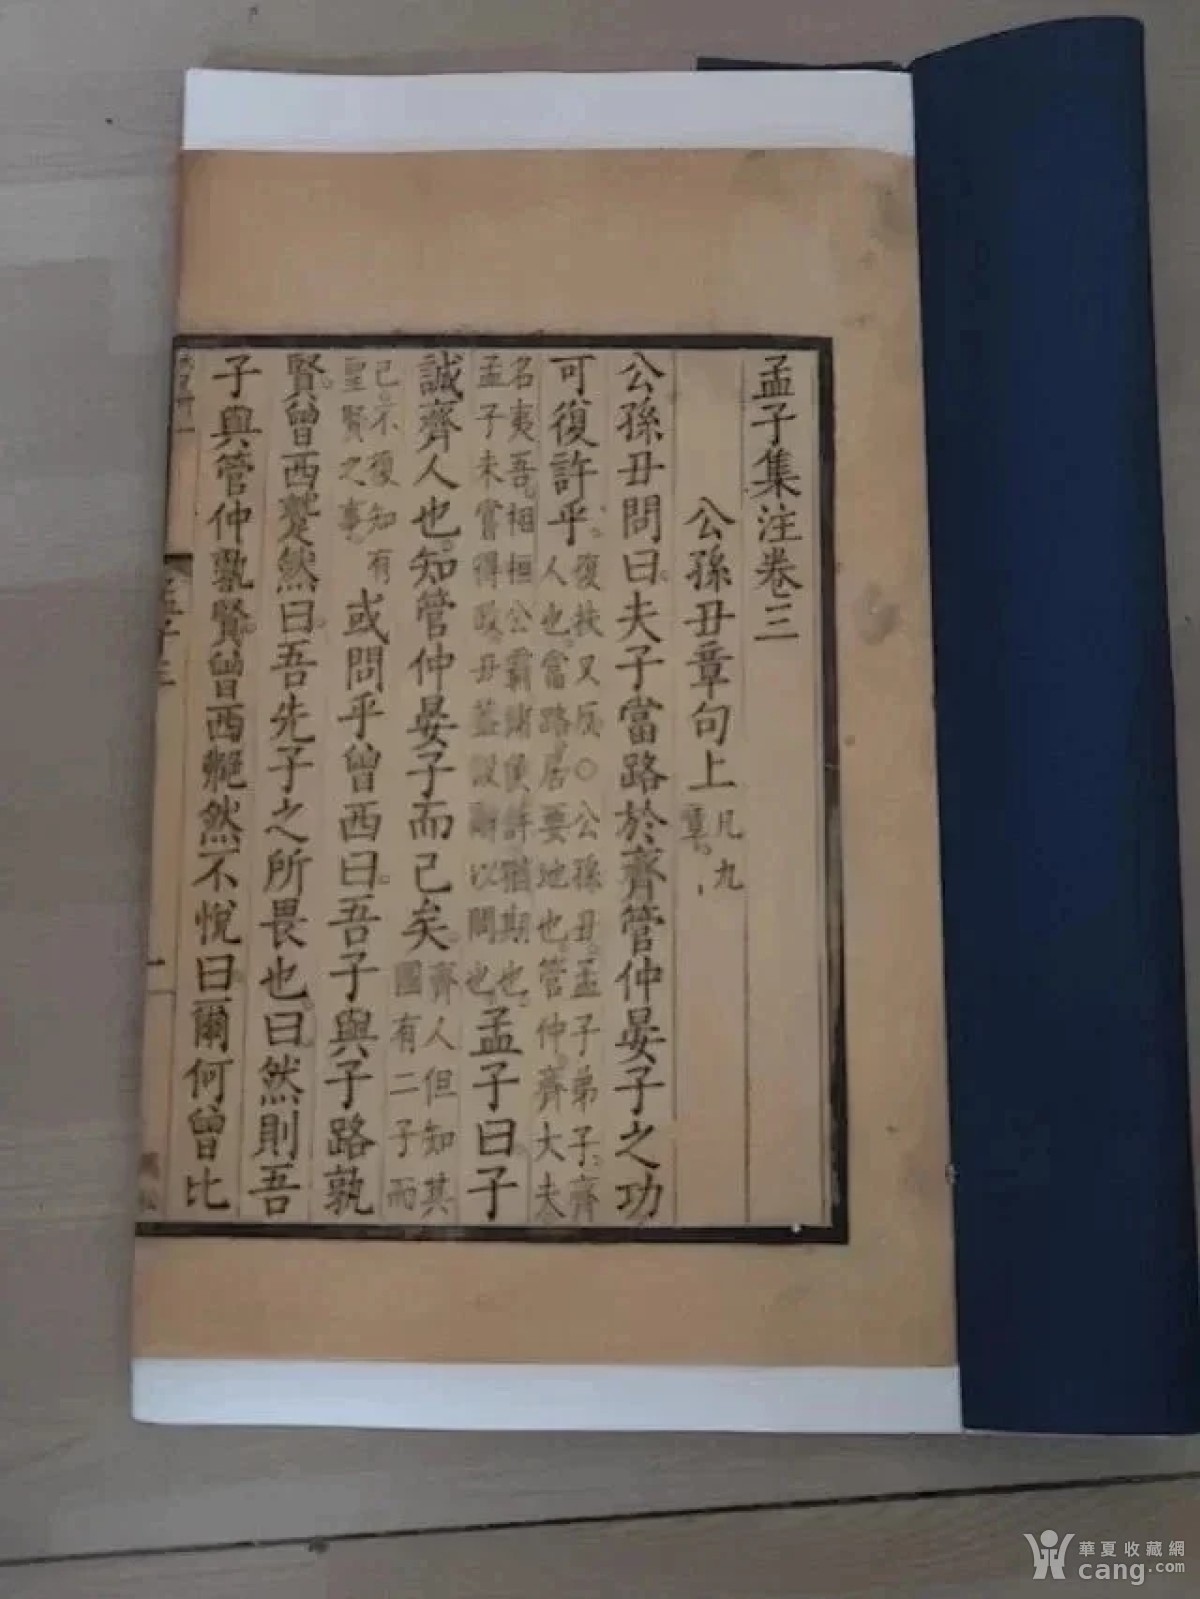 孟子集注卷三
公孫丑章句上 凡九
章。
公孫丑問曰。夫子當路於齊管仲晏子之功
可復許乎。復扶又反○公孫丑。孟子弟子。齊
人也。當路居要地也。管仲。齊大夫
名夷吾。相桓公霸諸侯許猶期也。
孟子未嘗得政。丑蓋設辭以問也。孟子曰子
誠齊人也。知管仲晏子而已矣。齊人但知其
國有二子而
已。不復知有
聖賢之事。或問乎曾西曰。吾子與子路孰
賢。曾西蹵然曰。吾先子之所畏也。曰。然則吾
子與管仲孰賢。曾西艴然不悅曰。爾何曾比
孟子三
一
華夏收藏網
cang.com